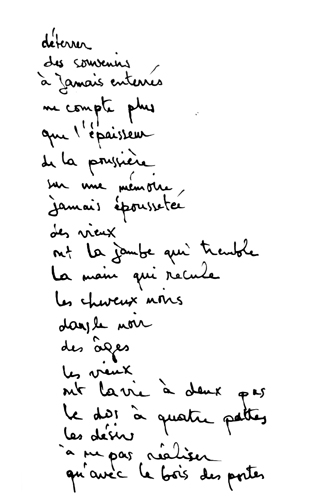 déterrer
des souvenirs
à jamais enterrés
ne compte plus
que l'épaisseur
de la poussière
sur une mémoire
jamais époussetée
des vieux
ont la jambe qui tremble
la main qui recule
les cheveux noirs
dans le noir
des âges
les vieux
ont la vie à deux pas
le dos à quatre pattes
les désirs
à ne pas réaliser
qu'avec le bois des portes